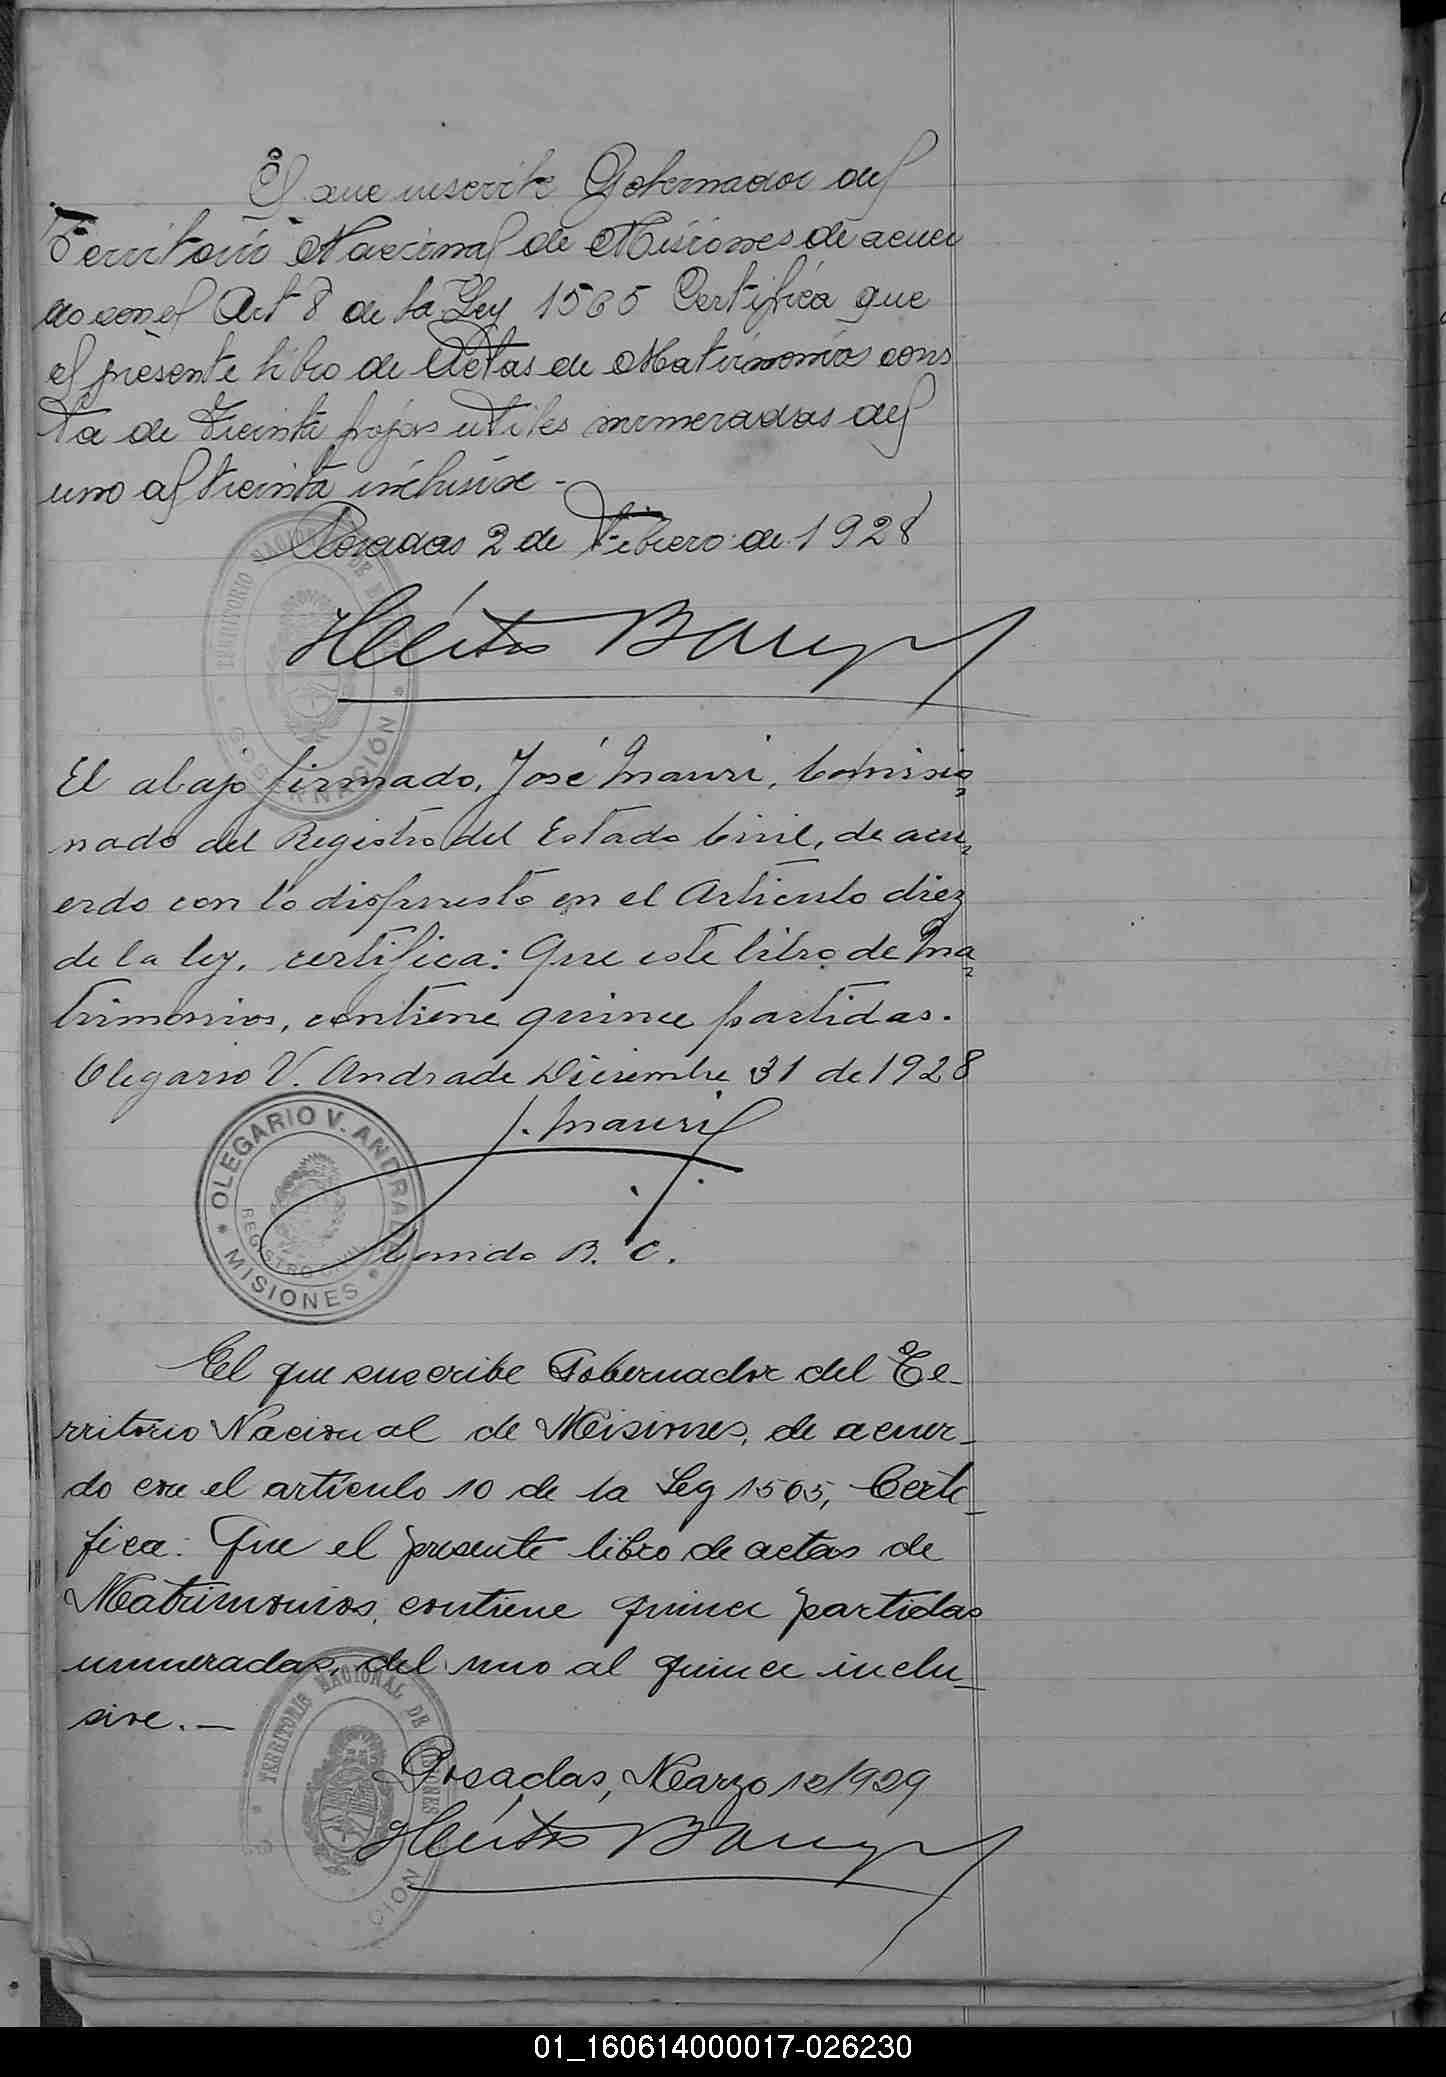 El que suscribe Gobernador del
Territorio Nacional de Misiones de acuer
do con el Art 8 de la Ley 1565 Certifica que
el presente libro de Actas de Matrimonios cons
ta de treinta fojas utiles numeradas del
uno al treinta inclusive -
Posadas 2 de Febrero de 1928
TERRITORIO NACIONAL DE
GOBERNACIÓN
El abajo firmado, José Mauri, Comisio
nado del Registro del Estado Civil, de acu
erdo con lo dispuesto en el Articulo diez
de la ley, certifica: Que este libro de Ma
trimonios, contiene quince partidas.
Olegario V. Andrade Diciembre 31 de 1928
J. Mauri
OLEGARIO V. ANDRADE
REGISTRO CIVIL
MISIONES
El que suscribe Gobernador del Te-
rritorio Nacional de Misiones, de acuer-
do con el artículo 10 de la Ley 1565, Certi-
fica: Que el presente libro de actas de
Matrimonios, contiene quince partidas
numeradas, del uno al quince inclu-
sive. —
TERRITORIO NACIONAL DE MISIONES
Posadas, Marzo 12/929
01_160614000017-026230